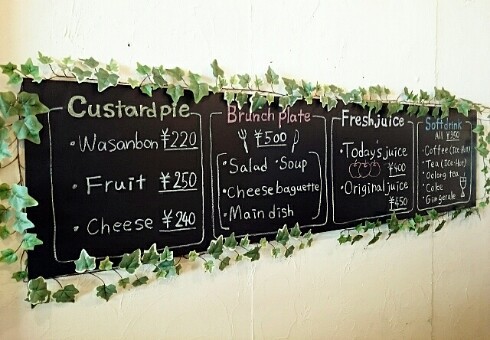 Custard pie
・Wasanbon ¥220
・Fruit ¥250
・Cheese ¥240
Brunch plate
¥500
・Salad ・Soup
・Cheese baguette
・Main dish
Fresh juice
・Today's juice
¥400
・Original juice
¥450
Soft drink
All ¥350
・Coffee (Ice・Hot)
・Tea (Ice・Hot)
・Oolong tea
・Coke
・Gingerale